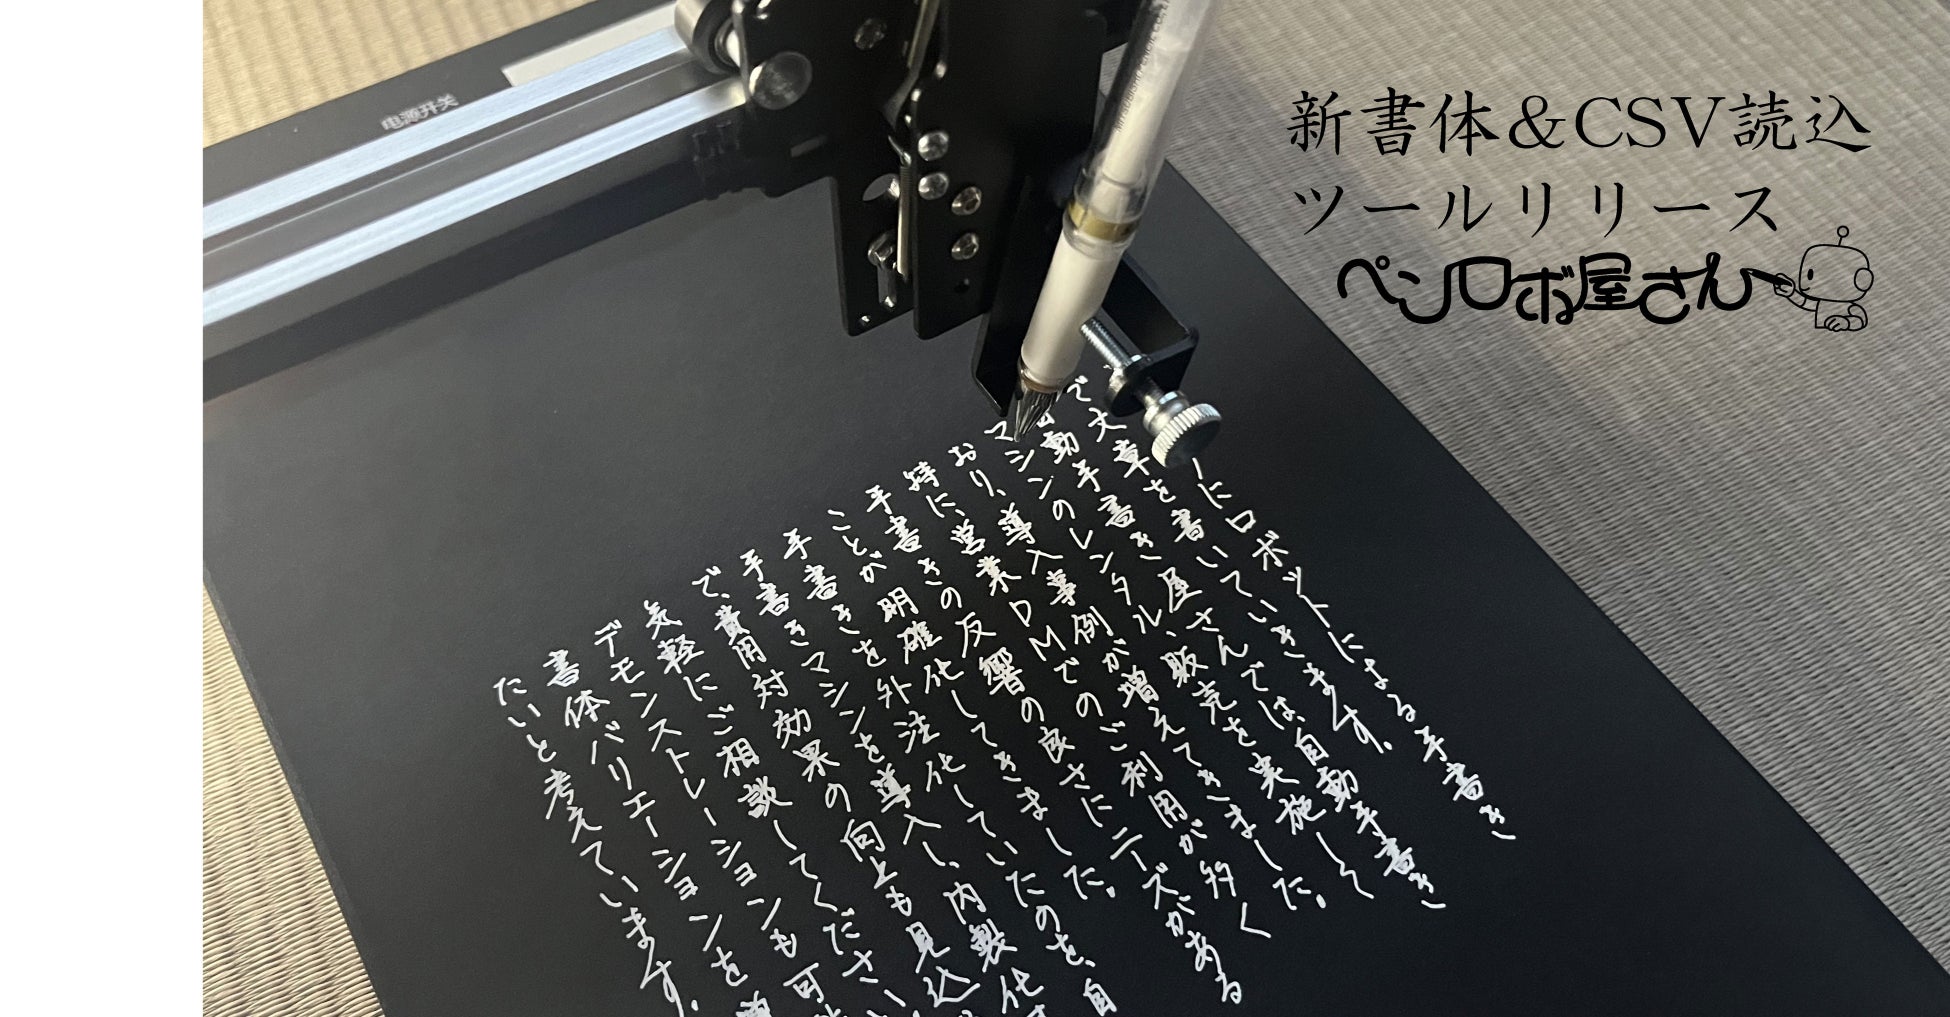 电源开关
新書体&CSV読込
ツールリリース
ペンロボ屋さん
ーにロボットによる手書き
で文章を書いていきます。
自動手書き屋さんでは、自動手書き
マシンのレンタル、販売を実施して
おり、導入事例が増えてきました。
特に、営業DMでのご利用が多く
手書きの反響の良さにニーズがある
ことが明確化してきました。
手書きを外注化していたのを、自
手書きマシンを導入し、内製化
で、費用対効果の向上も見込
気軽にご相談してください
デモンストレーションも可
書体バリエーションを
たいと考えています。